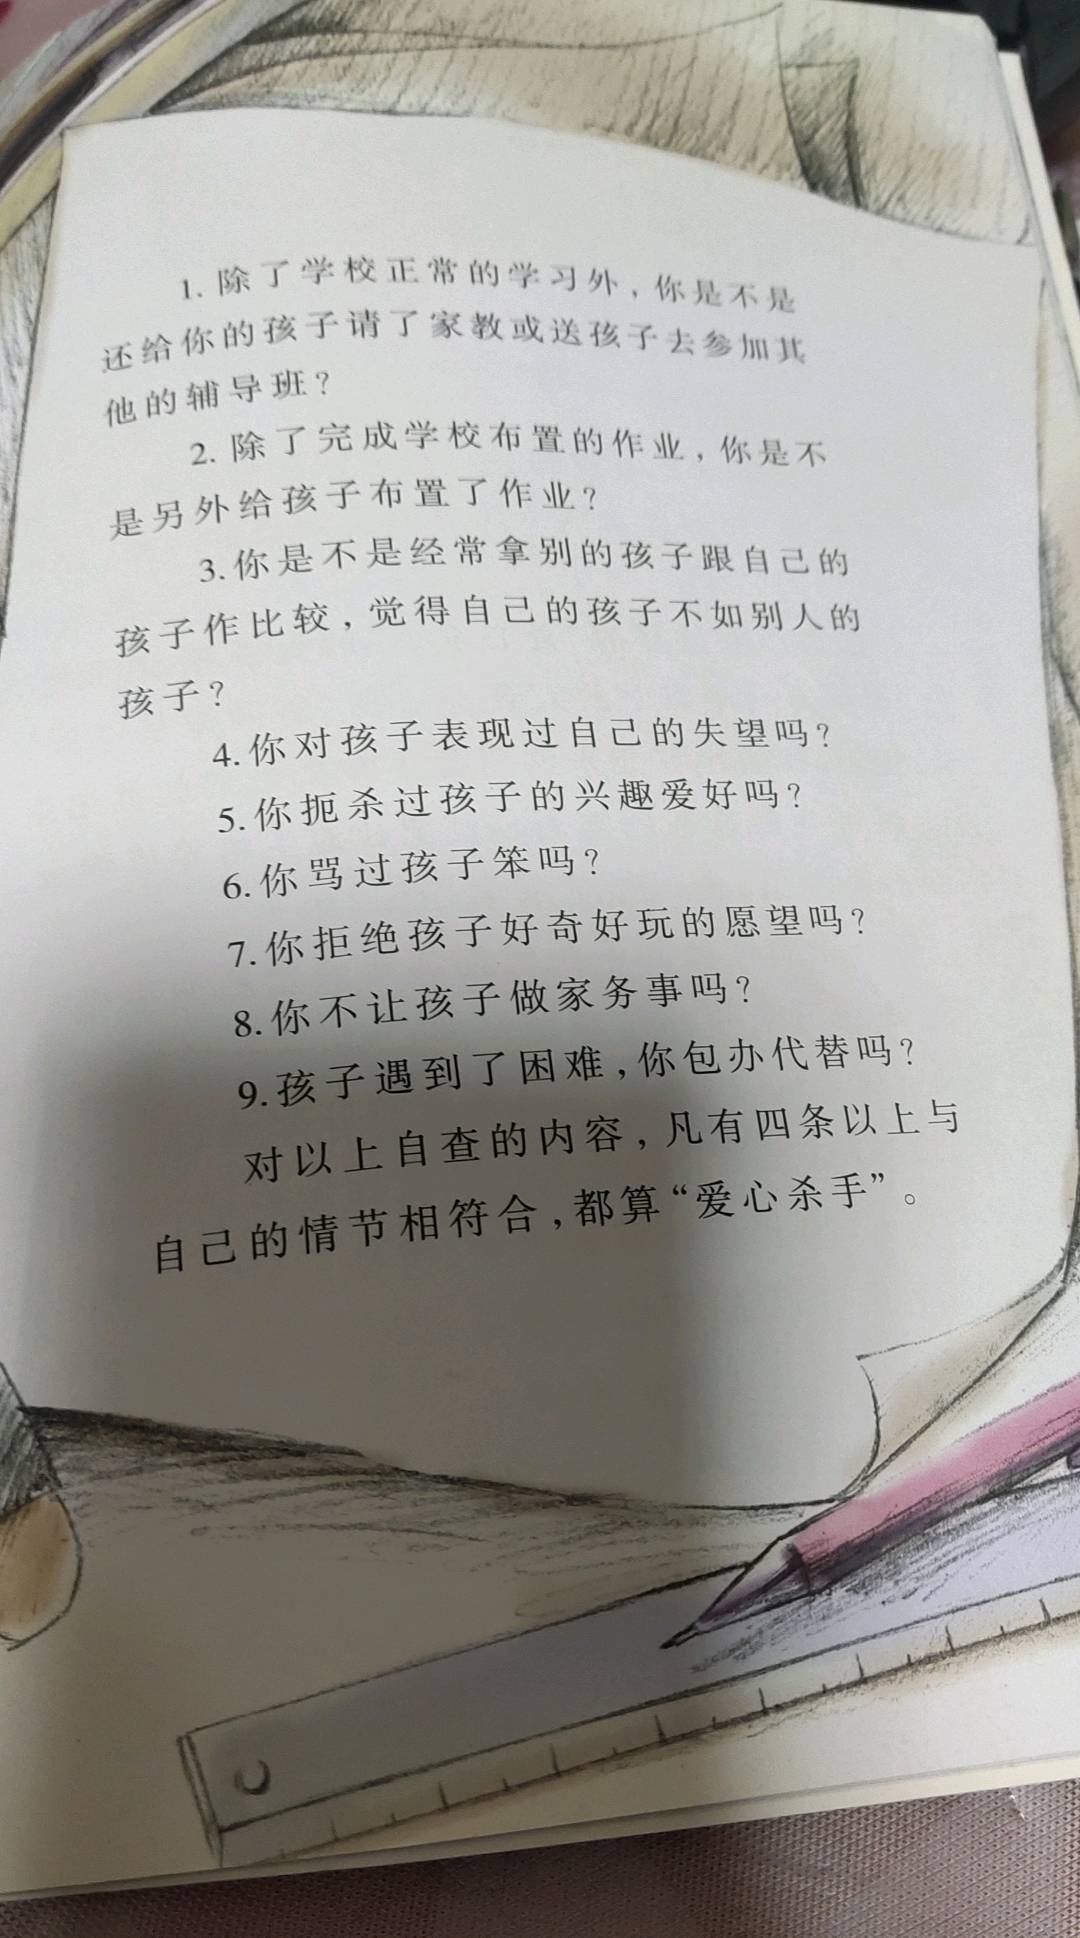 1.除了学校正常的学习外，你是不是
还给你的孩子请了家教或送孩子去参加其
他的辅导班？
2.除了完成学校布置的作业，你是不
是另外给孩子布置了作业？
3.你是不是经常拿别的孩子跟自己的
孩子作比较，觉得自己的孩子不如别人的
孩子？
4.你对孩子表现过自己的失望吗？
5.你扼杀过孩子的兴趣爱好吗？
6.你骂过孩子笨吗？
7.你拒绝孩子好奇好玩的愿望吗？
8.你不让孩子做家务事吗？
9.孩子遇到了困难，你包办代替吗？
对以上自查的内容，凡有四条以上与
自己的情节相符合，都算“爱心杀手”。